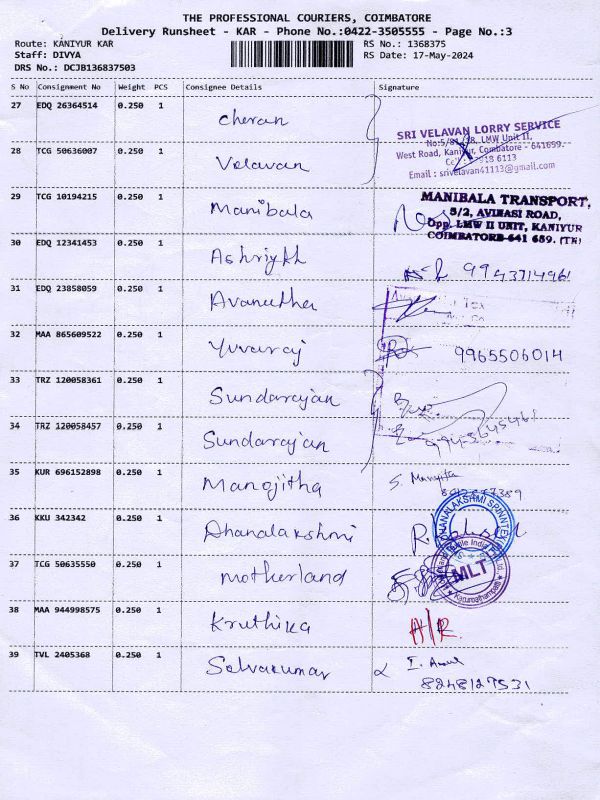 THE PROFESSIONAL COURIERS, COIMBATORE
Delivery Runsheet - KAR - Phone No.:0422-3505555 - Page No.:3
Route: KANIYUR KAR
RS No.: 1368375
Staff: DIVYA
RS Date: 17-May-2024
DRS No.: DCJB136837503
S No Consignment No Weight PCS Consignee Details Signature
27 EDQ 26364514 0.250 1 Cheran
SRI VELAVAN LORRY SERVICE
LMW Unit II,
West Road, Kaniyur, Coimbatore - 641659.
6113
Email : srivelavan41113@gmail.com
28 TCG 50636007 0.250 1 Velavan
29 TCG 10194215 0.250 1 Manibala
MANIBALA TRANSPORT,
5/2, AVINASI ROAD,
Opp. LMW II UNIT, KANIYUR
COIMBATORE-641 659. (TN)
30 EDQ 12341453 0.250 1 Ashriykh 9943714961
31 EDQ 23858059 0.250 1 Avanutha
32 MAA 865609522 0.250 1 Yuvaraj 9965506014
33 TRZ 120058361 0.250 1 Sundarajan
34 TRZ 120058457 0.250 1 Sundarajan
35 KUR 696152898 0.250 1 Manojitha S.
36 KKU 342342 0.250 1 Dhanalakshmi R.
DHANALAKSHMI SPINNTEX
37 TCG 50635550 0.250 1 motherland
MLT
Karumathampatti
38 MAA 944998575 0.250 1 Kruthika H/R
39 TVL 2405368 0.250 1 Selvakumar
8248127531